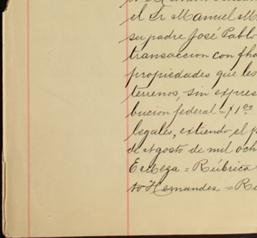 el Sr Manuel M
su padre José Pablo
transaccion con fha
propiedades que les
terrenos, sin expres
bucion federal
legales, extiendo el p
de Agosto de mil och
Erteza = Rúbrica
to Hernandes = Rú